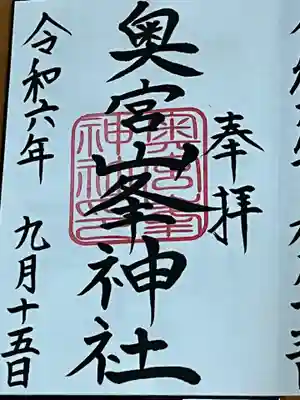 奉拝
奥宮峯神社
令和六年 九月十五日